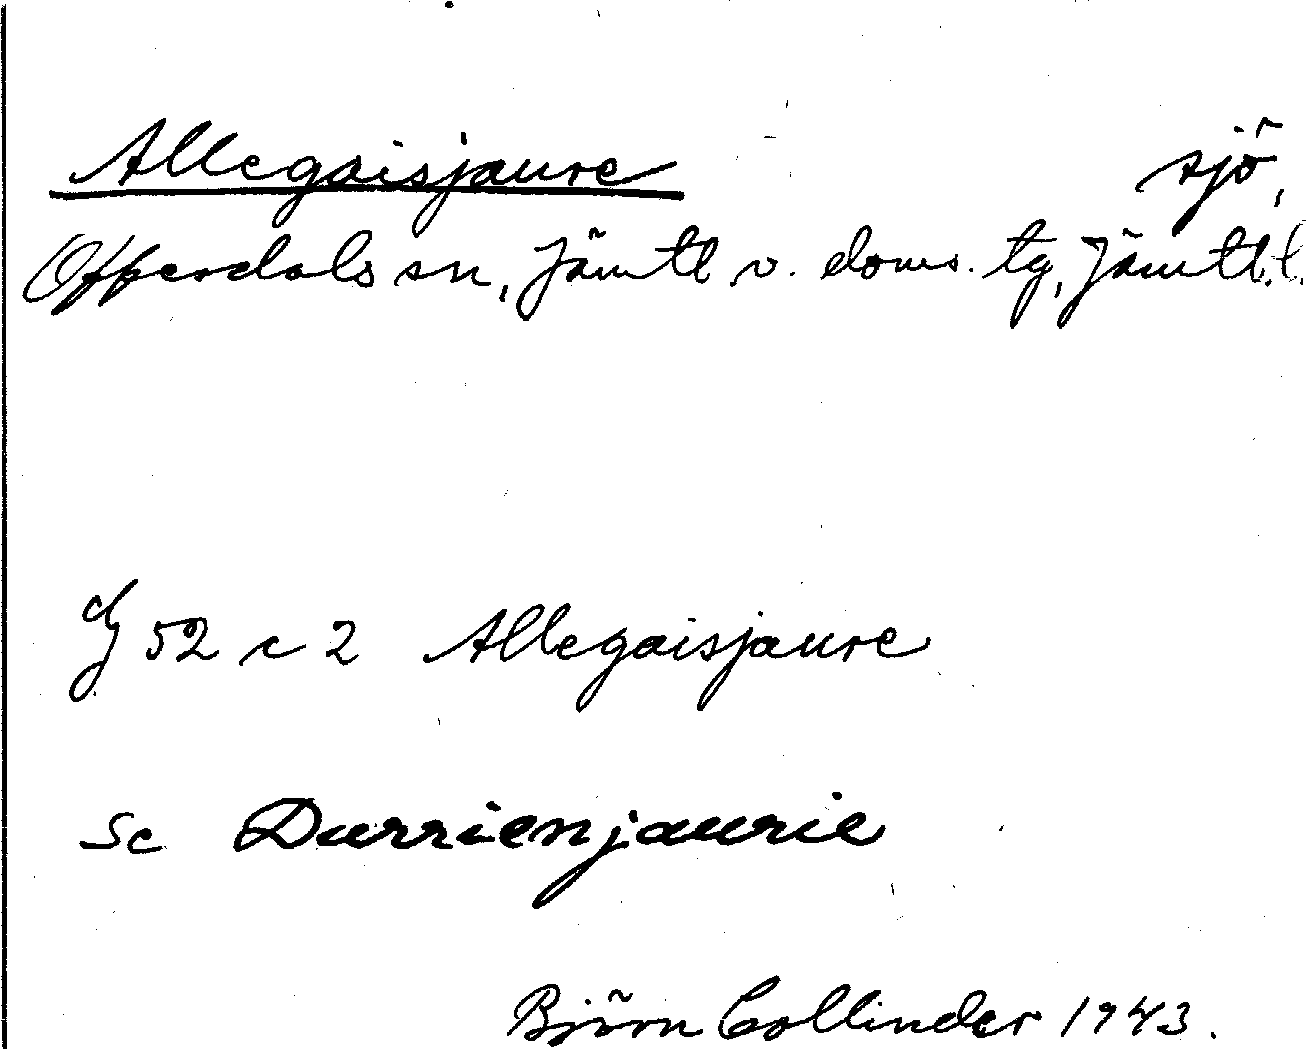 Allegaisjaure sjö,
Offerdals sn, Jämtl. v. doms. tg, Jämtl. l.
G 52 c 2 Allegaisjaure
Se Durrienjaurie
Björn Collinder 1943.